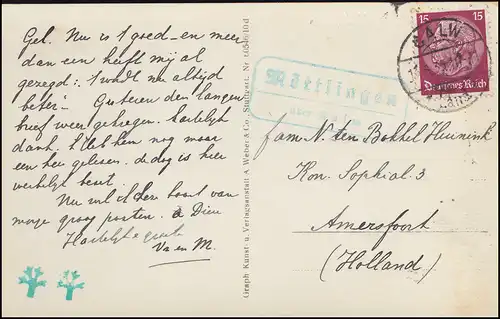 Gel. Nu is 't goed - en meer
dan een heeft mij al
gezegd: 't wordt nu altijd
beter - Gisteren den langen
brief weer gekregen. Hartelijk
dank. 'k Heb hem nog maar
een keer gelezen. de dag is hier
werkelijk bezet.
Nu wil ik deze kaart van
morgen graag posten. à Dieu
Hartelijke groeten
Va en M.
Graph. Kunst- u. Verlagsanstalt A. Weber & Co., Stuttgart. Nr.
Möttlingen
über
15 15
CALW
Deutsches Reich
Fam. N. ten Bokkel Huinink
Kon. Sophial. 3
Amersfoort
(Holland)